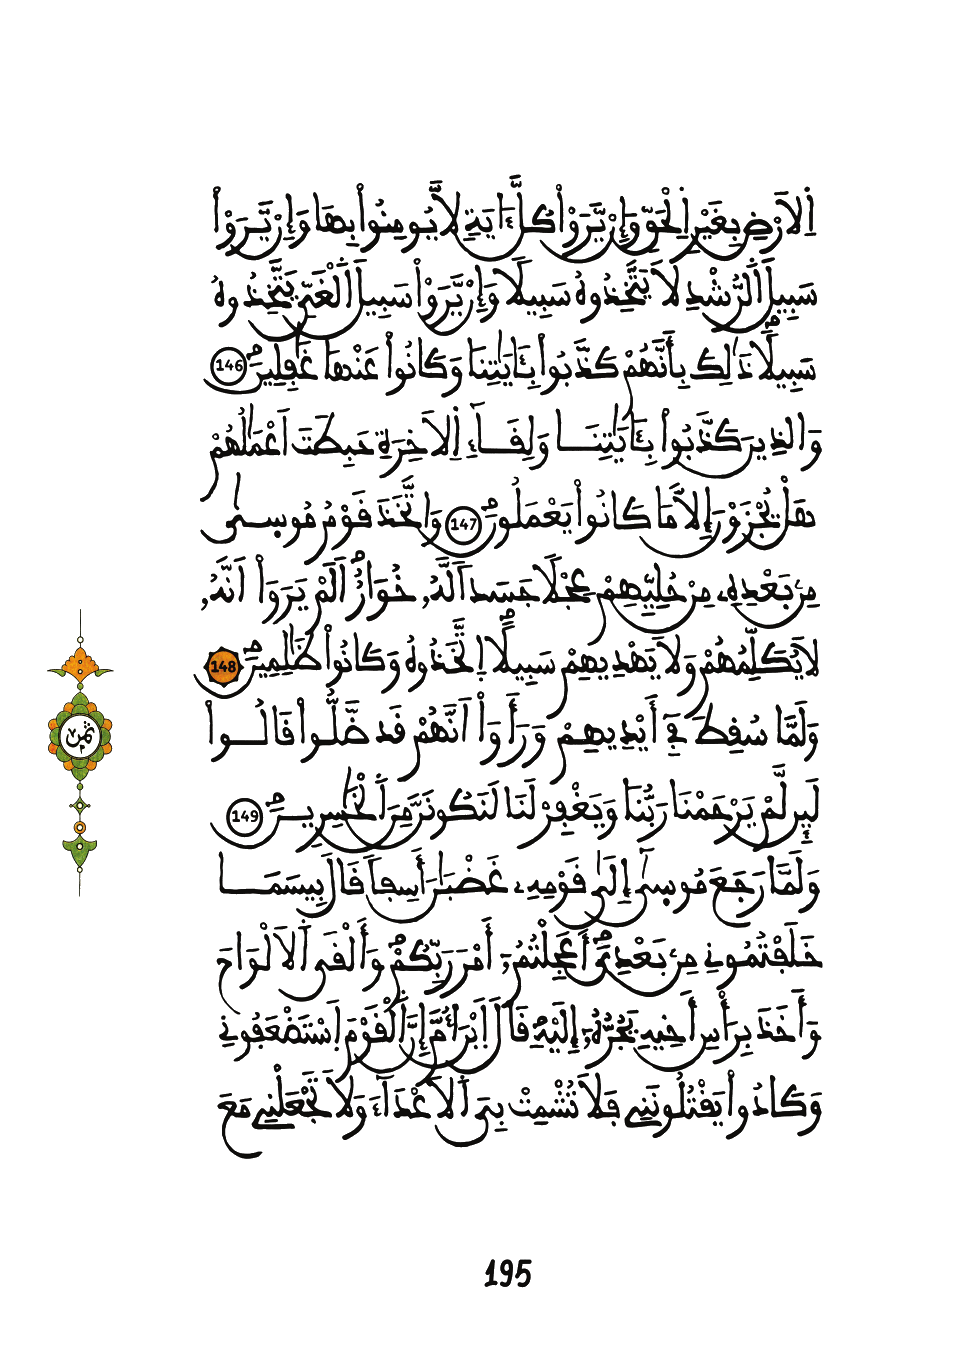 اِ۬لَارْضِ بِغَيْرِ اِ۬لْحَقِّ وَإِنْ يَّرَوْاْ كُلَّ ءَايَةٍ لَّا يُومِنُواْ بِهَا وَإِنْ يَّرَوْاْ
سَبِيلَ اَ۬لرُّشْدِ لَا يَتَّخِذُوهُ سَبِيلًا وَإِنْ يَّرَوْاْ سَبِيلَ اَ۬لْغَيِّ يَتَّخِذُوهُ
سَبِيلًاۖ ذَٰلِكَ بِأَنَّهُمْ كَذَّبُواْ بِـَٔايَٰتِنَا وَكَانُواْ عَنْهَا غَٰفِلِينَۖ 146
وَالذِينَ كَذَّبُواْ بِـَٔايَٰتِنَا وَلِقَآءِ اِ۬لَاخِرَةِ حَبِطَتَ اَعْمَٰلُهُمْ
هَلْ يُجْزَوْنَ إِلَّا مَا كَانُواْ يَعْمَلُونَۖ 147 وَاتَّخَذَ قَوْمُ مُوسىٰ
مِنۢ بَعْدِهِۦ مِنْ حُلِيِّهِمْ عِجْلًا جَسَدًا لَّهُۥ خُوَارٌۖ اَلَمْ يَرَوَاْ اَنَّهُۥ
لَا يُكَلِّمُهُمْ وَلَا يَهْدِيهِمْ سَبِيلًاۖ اِ۪تَّخَذُوهُ وَكَانُواْ ظَٰلِمِينَۖ 148
وَلَمَّا سُقِطَ فِےٓ أَيْدِيهِمْ وَرَأَوَاْ اَنَّهُمْ قَد ضَّلُّواْ قَالُواْ
لَئِن لَّمْ يَرْحَمْنَا رَبُّنَا وَيَغْفِرْ لَنَا لَنَكُونَنَّ مِنَ اَ۬لْخَٰسِرِينَۖ 149
وَلَمَّا رَجَعَ مُوسىٰٓ إِلَىٰ قَوْمِهِۦ غَضْبَٰنَ أَسِفاً قَالَ بِيسَمَا
خَلَفْتُمُونِے مِنۢ بَعْدِيَۖ أَعَجِلْتُمُۥٓ أَمْرَ رَبِّكُمْۖ وَأَلْقَى اَ۬لَالْوَاحَ
وَأَخَذَ بِرَأْسِ أَخِيهِ يَجُرُّهُۥٓ إِلَيْهِۖ قَالَ اَ۪بْنَ أُمَّ إِنَّ اَ۬لْقَوْمَ اَ۪سْتَضْعَفُونِے
وَكَادُواْ يَقْتُلُونَنِے فَلَا تُشْمِتْ بِيَ اَ۬لَاعْدَآءَ وَلَا تَجْعَلْنِے مَعَ
ثمن
195